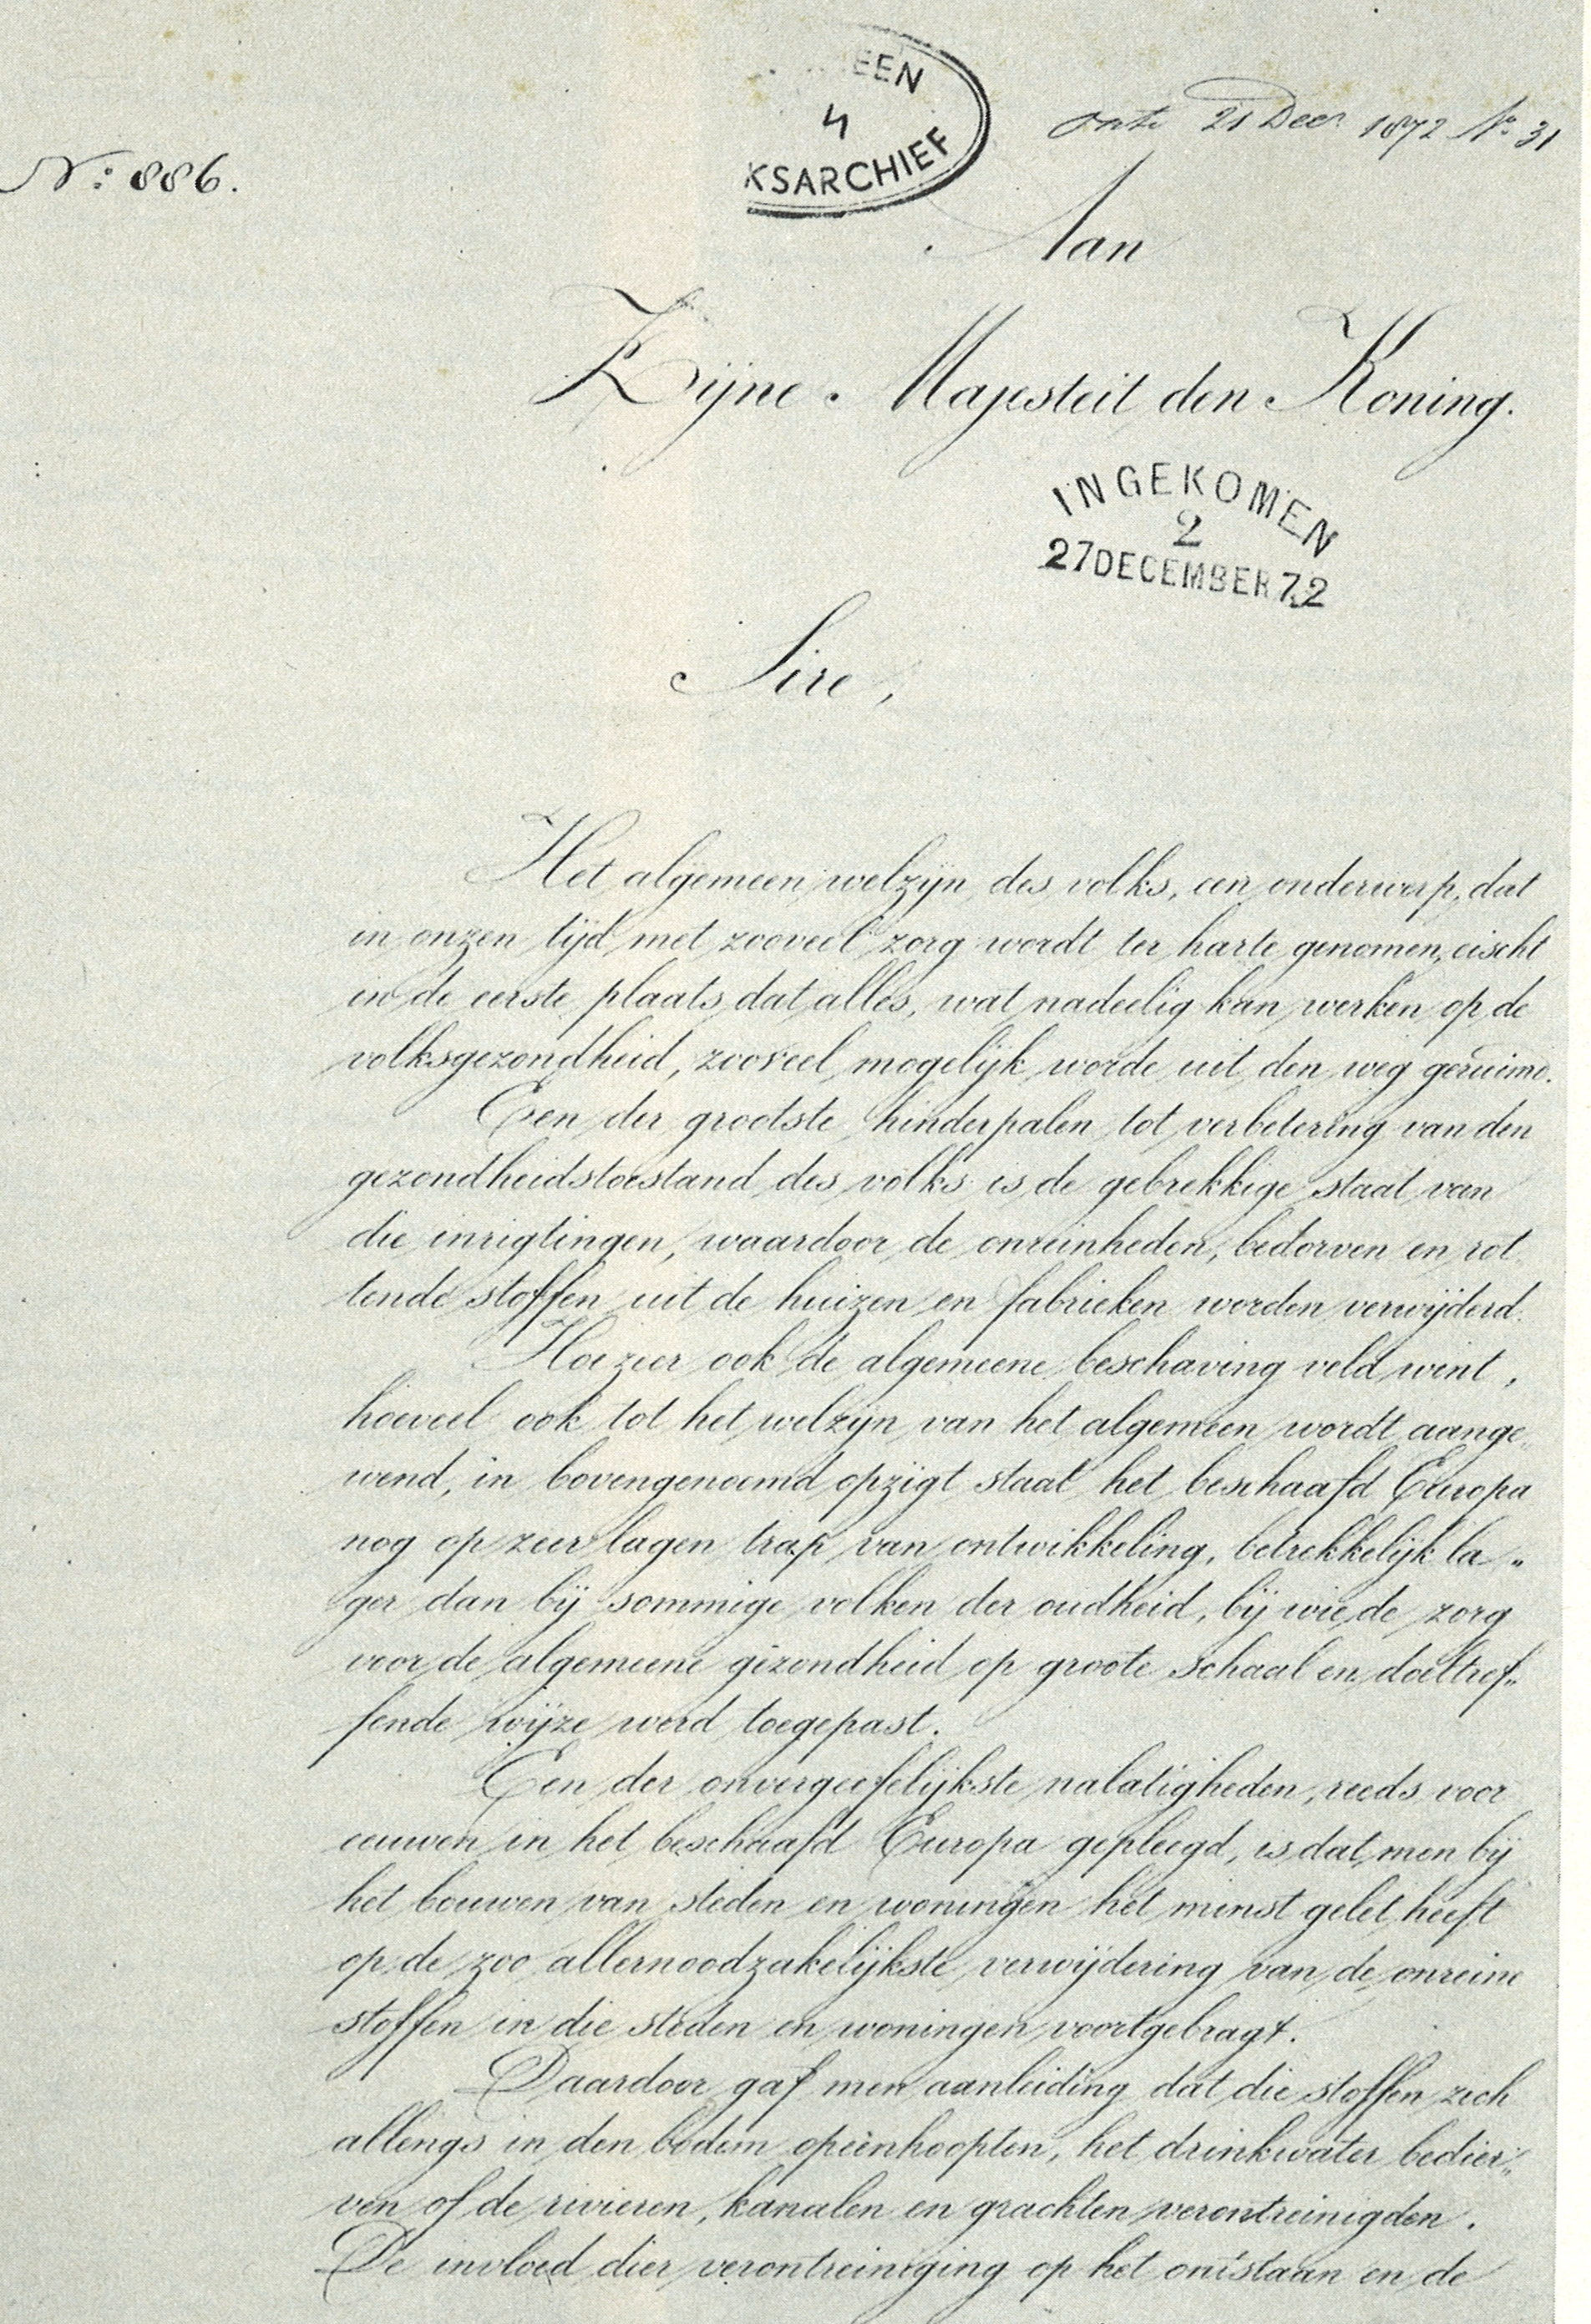 EEN
4
KSARCHIEF
21 Decr. 1872 No. 31
No: 886.
Aan
Zijne Majesteit den Koning.
INGEKOMEN
2
27 DECEMBER 72
Sire,
Het algemeen welzijn des volks, een onderwerp, dat
in onzen tijd met zooveel zorg wordt ter harte genomen, eischt
in de eerste plaats dat alles, wat nadeelig kan werken op de
volksgezondheid, zooveel mogelijk worde uit den weg geruimd.
Een der grootste hinderpalen tot verbetering van den
gezondheidstoestand des volks is de gebrekkige staat van
die inrigtingen, waardoor de onreinheden, bedorven en rot-
tende stoffen uit de huizen en fabrieken worden verwijderd.
Hoezeer ook de algemeene beschaving veld wint,
hoeveel ook tot het welzijn van het algemeen wordt aange-
wend, in bovengenoemd opzigt staat het beschaafd Europa
nog op zeer lagen trap van ontwikkeling, betrekkelijk la-
ger dan bij sommige volken der oudheid, bij wie de zorg
voor de algemeene gezondheid op groote schaal en doeltref-
fende wijze werd toegepast.
Een der onvergeefelijkste nalatigheden, reeds voor
eeuwen in het beschaafd Europa gepleegd, is dat men bij
het bouwen van steden en woningen het minst gelet heeft
op de zoo allernoodzakelijkste verwijdering van de onreine
stoffen in die steden en woningen voortgebragt.
Daardoor gaf men aanleiding dat die stoffen zich
allengs in den bodem opeenhoopten, het drinkwater bedier-
ven of de rivieren, kanalen en grachten verontreinigden.
De invloed dier verontreiniging op het ontstaan en de